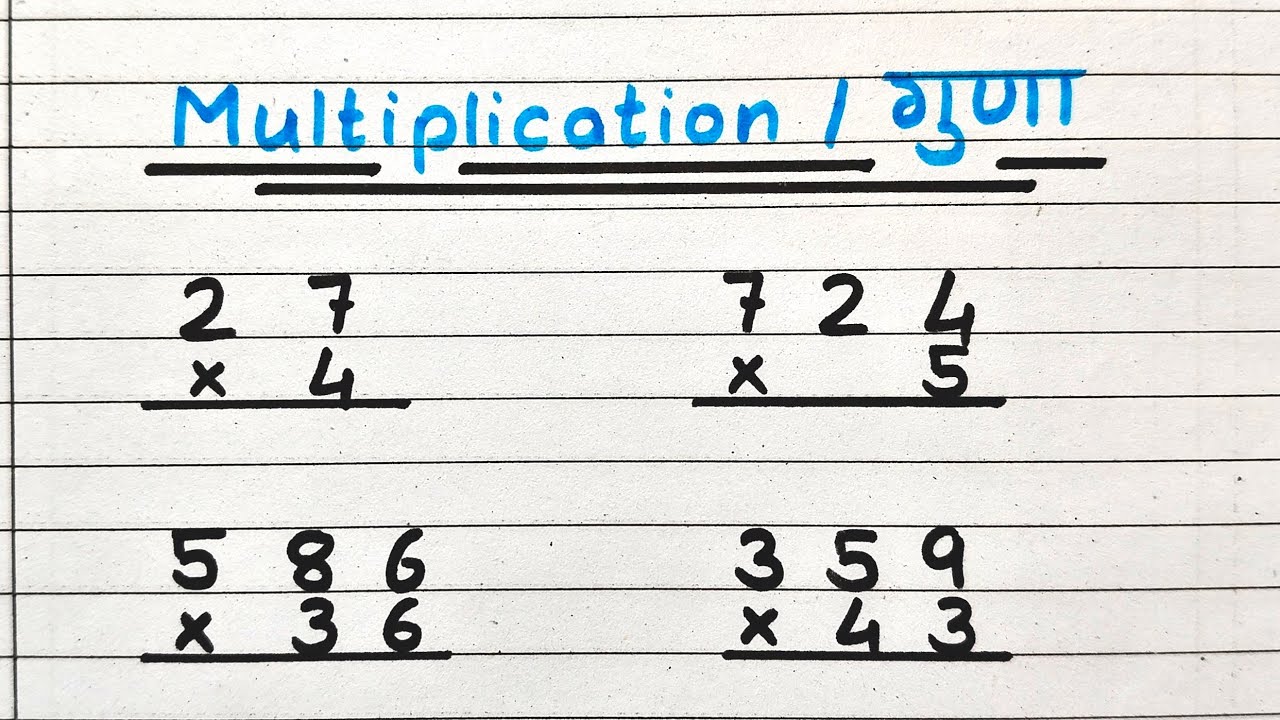 Multiplication / गुणा
2 7
× 4
7 2 4
× 5
5 8 6
× 3 6
3 5 9
× 4 3